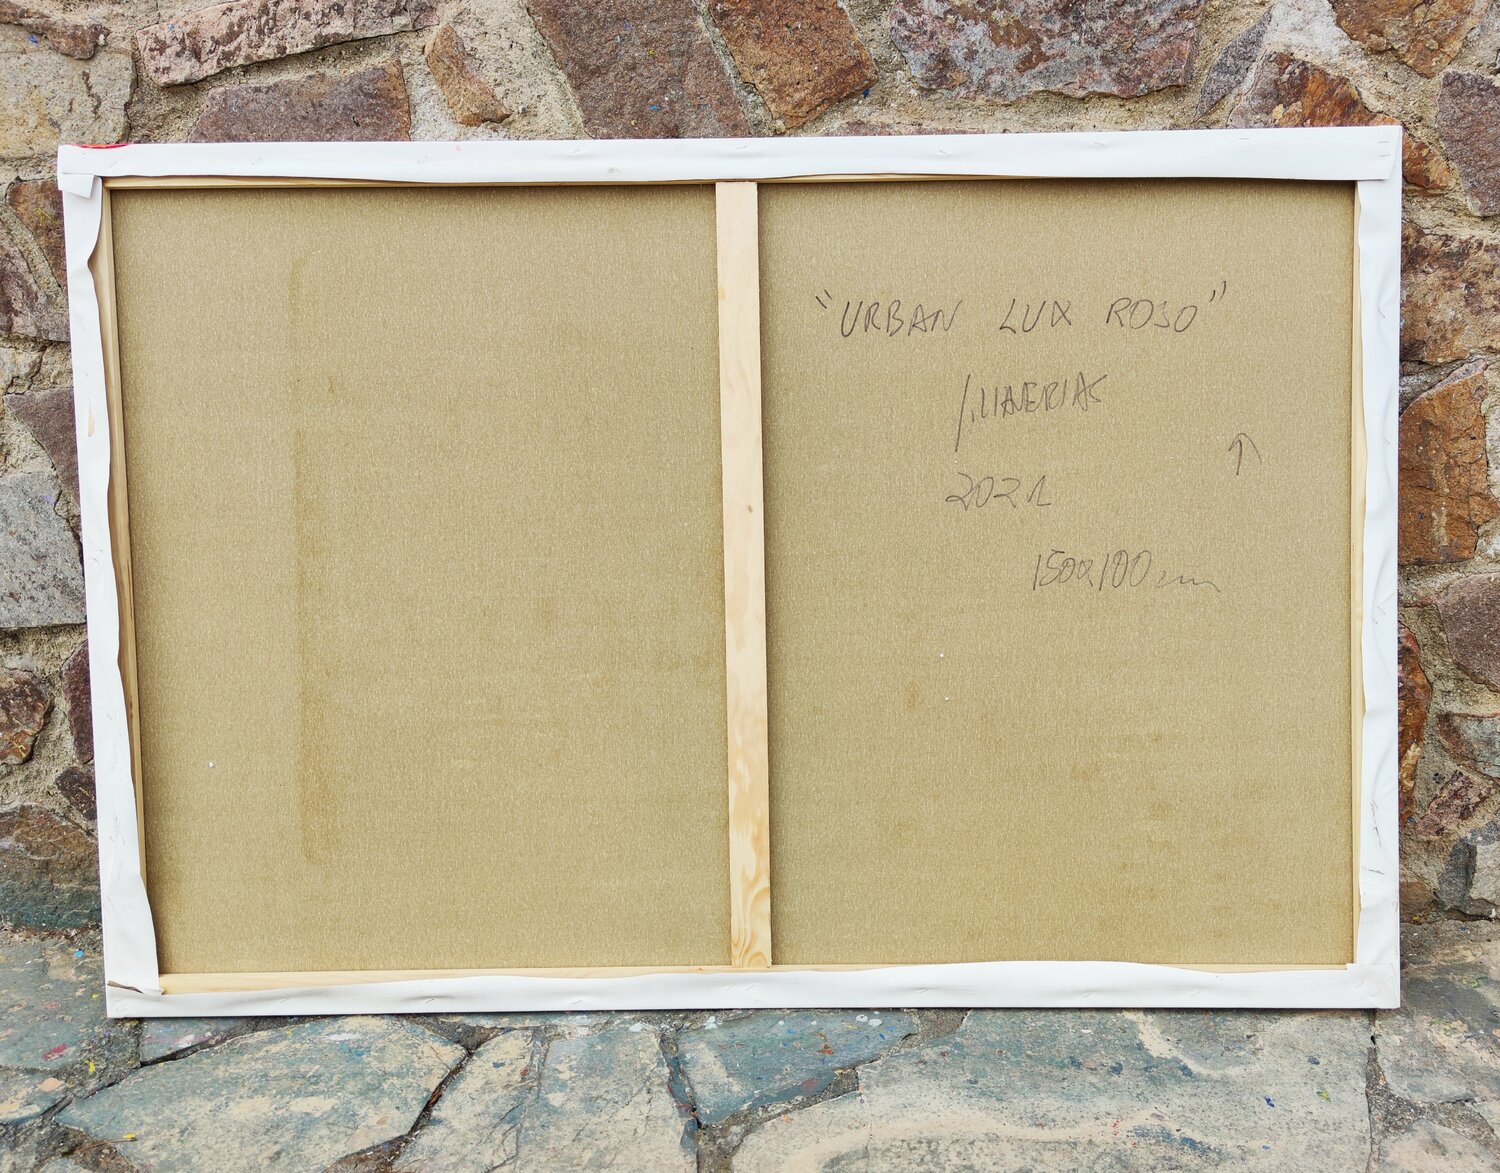 "URBAN LUX ROJO"
J. LLAVERIAS
2021
150x100 cm